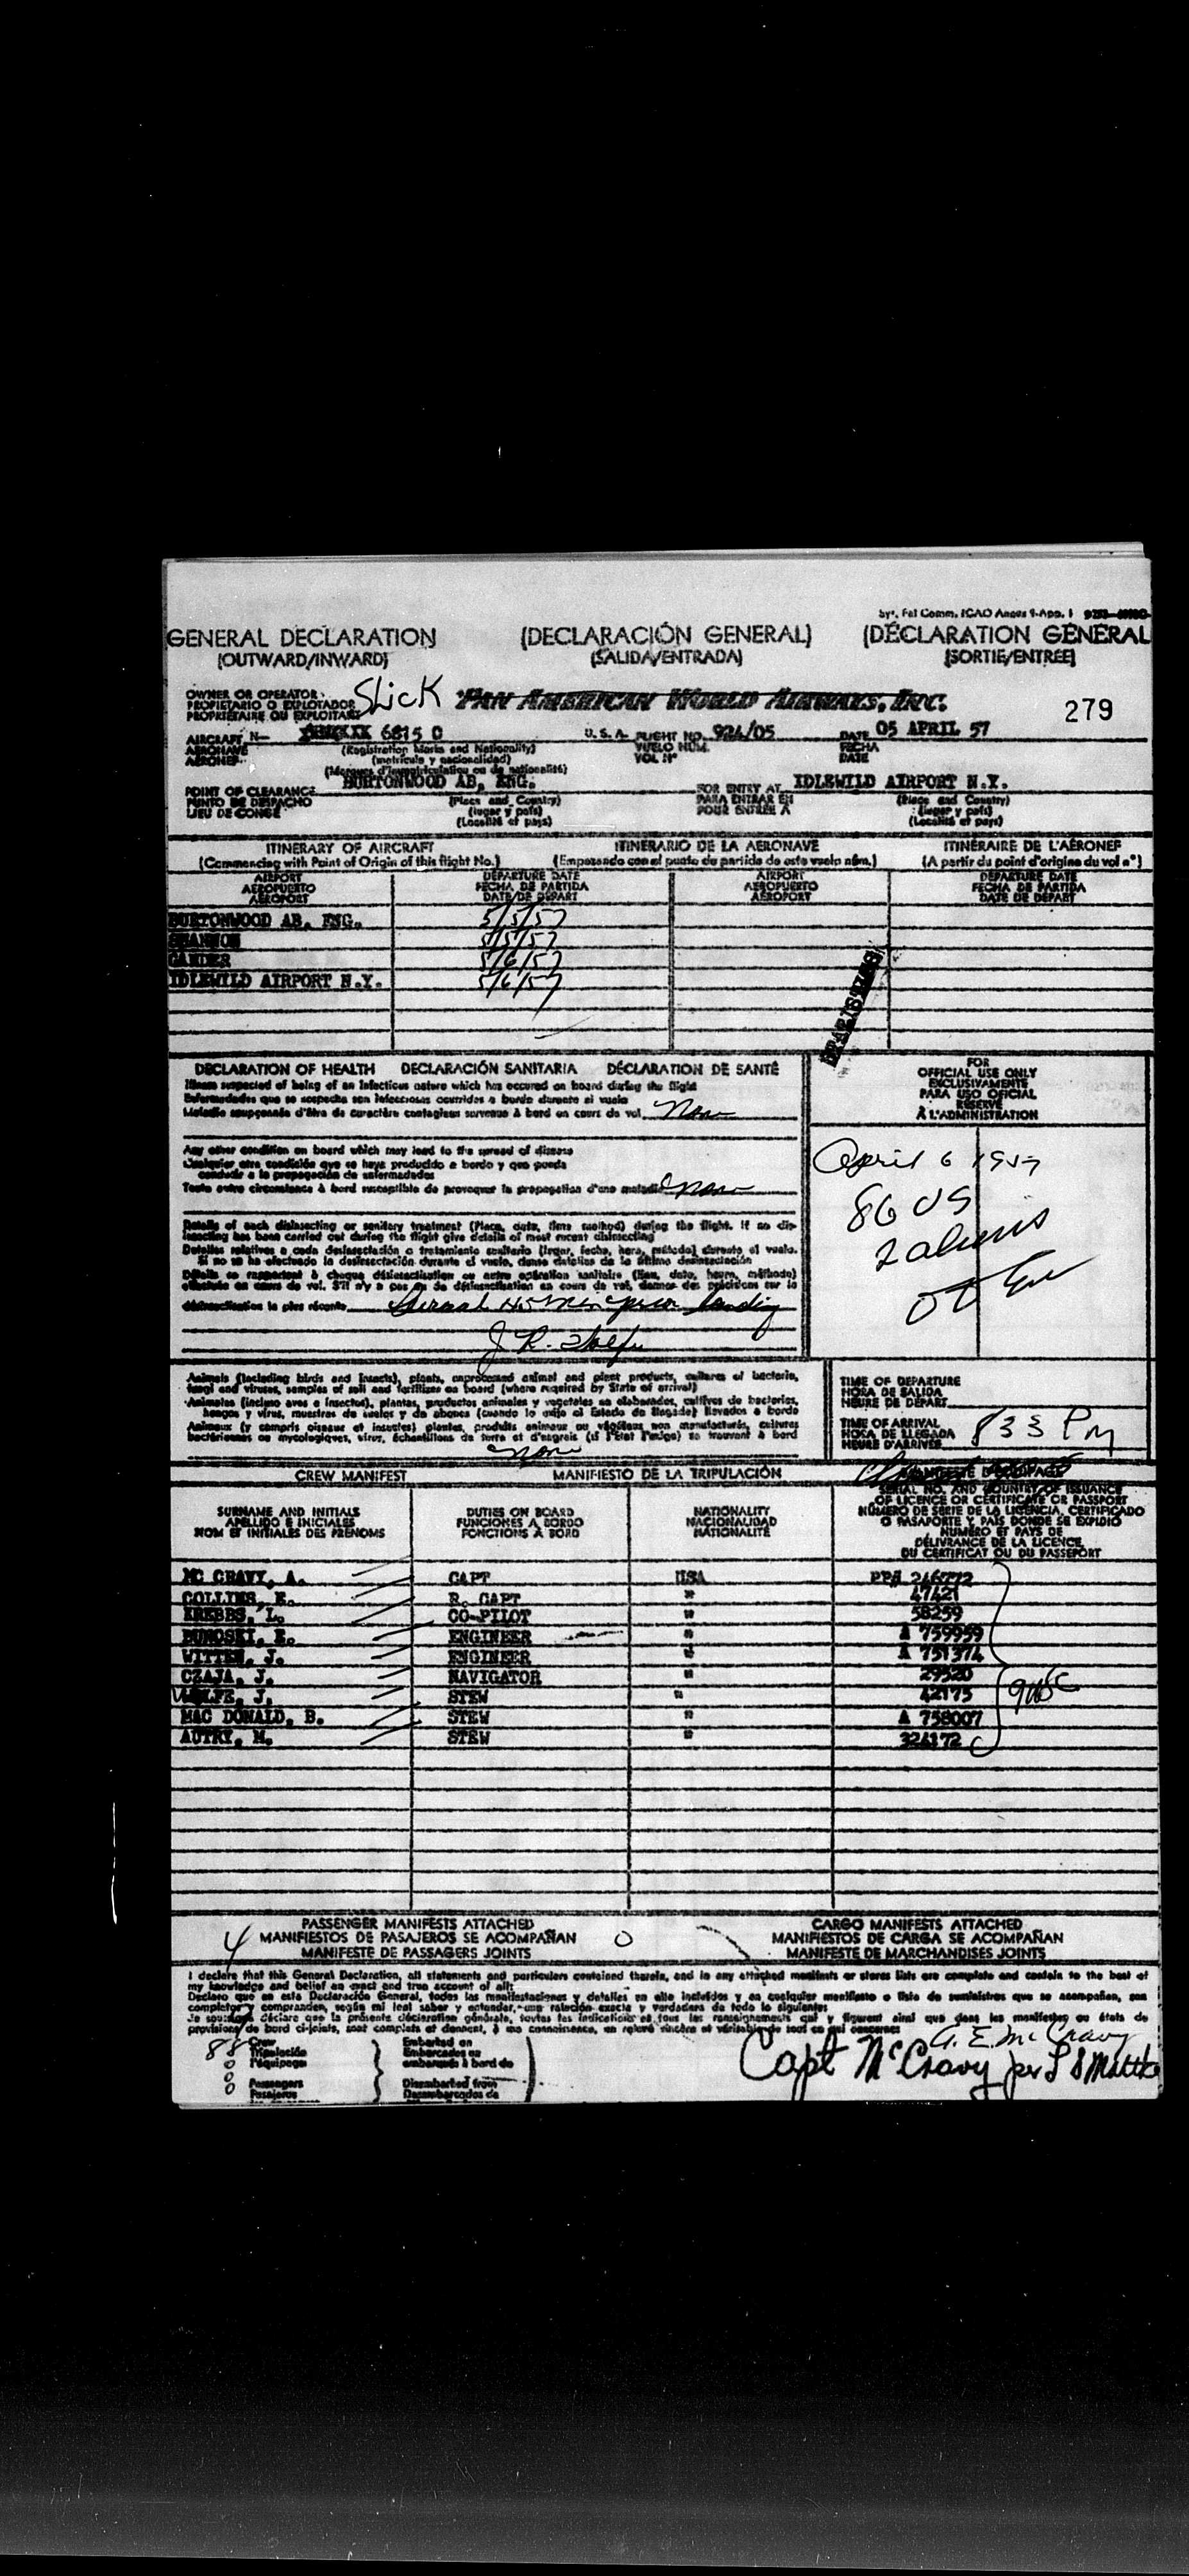 GENERAL DECLARATION (DECLARACIÓN GENERAL) (DÉCLARATION GÉNÉRAL
(OUTWARD/INWARD) (SALIDA/ENTRADA) (SORTIE/ENTREE)
OWNER OR OPERATOR
PROPIETARIO O EXPLOTADOR
PROPRIETAIRE OU EXPLOITANT
Slick PAN AMERICAN WORLD AIRWAYS, INC.
279
AIRCRAFT N- 6815 C U.S.A. FLIGHT NO. 924/05 DATE 05 APRIL 57
AERONAVE (Registration Marks and Nationality) VUELO NUM. FECHA
AERONEF (matricula y nacionalidad) VOL Nº DATE
(Marques d'immatriculation ou de nationalité)
POINT OF CLEARANCE BURTONWOOD AB, ENG. FOR ENTRY AT IDLEWILD AIRPORT N.Y.
PUNTO DE DESPACHO (Place and Country) PARA ENTRAR EN (Place and Country)
LIEU DE CONGE (lugar y país) POUR ENTRÉE A (lugar y país)
(Localité et pays) (Localité et pays)
ITINERARY OF AIRCRAFT ITINERARIO DE LA AERONAVE ITINÉRAIRE DE L'AÉRONEF
(Commencing with Point of Origin of this flight No.) (Empezando con el punto de partida de este vuelo núm.) (A partir du point d'origine du vol nº)
AIRPORT DEPARTURE DATE AIRPORT DEPARTURE DATE
AEROPUERTO FECHA DE PARTIDA AEROPUERTO FECHA DE PARTIDA
AÉROPORT DATE DE DÉPART AÉROPORT DATE DE DÉPART
BURTONWOOD AB, ENG. 5/5/57
SHANNON 5/5/57
GANDER 5/6/57
IDLEWILD AIRPORT N.Y. 5/6/57
DECLARATION OF HEALTH DECLARACIÓN SANITARIA DÉCLARATION DE SANTÉ
Illness suspected of being of an infectious nature which has occured on board during the flight
Enfermedades que se sospecha son infecciosas ocurridas a bordo durante el vuelo
Maladie soupçonnée d'être de caractère contagieux survenue à bord en cours de vol None
Any other condition on board which may lead to the spread of disease
Cualquier otra condición que se haya producido a bordo y que pueda
conducir a la propagación de enfermedades
Toute autre circonstance à bord susceptible de provoquer la propagation d'une maladie None
Details of each disinsecting or sanitary treatment (Place, date, time method) during the flight. If no dis-
insecting has been carried out during the flight give details of most recent disinsecting
Detalles relativos a cada desinsectación o tratamiento sanitario (lugar, fecha, hora, método) durante el vuelo.
Si no se ha efectuado la desinsectación durante el vuelo, dense detalles de la última desinsectación
désinsectisation la plus récente Aerosol 45 Min prior landing
FOR
OFFICIAL USE ONLY
EXCLUSIVAMENTE
PARA USO OFICIAL
RESERVÉ
À L'ADMINISTRATION
April 6 1957
86 US
2 aliens
Animals (including birds and insects), plants, unprocessed animal and plant products, cultures of bacteria,
fungi and viruses, samples of soil and fertilizer on board (where required by State of arrival)
Animales (incluso aves e insectos), plantas, productos animales y vegetales no elaborados, cultivos de bacterias,
hongos y virus, muestras de suelos y de abonos (cuando lo exija el Estado de llegada) llevados a bordo
Animaux (y compris oiseaux et insectes) plantes, produits animaux ou végétaux non manufacturés, cultures
bactériennes ou mycologiques, virus, échantillons de terre et d'engrais (si l'État l'exige) se trouvant à bord
None
TIME OF DEPARTURE
HORA DE SALIDA
HEURE DE DÉPART
TIME OF ARRIVAL
HORA DE LLEGADA
HEURE D'ARRIVÉE
833 PM
CREW MANIFEST MANIFIESTO DE LA TRIPULACIÓN
SURNAME AND INITIALS DUTIES ON BOARD NATIONALITY SERIAL NO. AND COUNTRY OF ISSUANCE
APELLIDO E INICIALES FUNCIONES A BORDO NACIONALIDAD OF LICENCE OR CERTIFICATE OR PASSPORT
NOM ET INITIALES DES PRÉNOMS FONCTIONS À BORD NATIONALITÉ NÚMERO DE SERIE DE LA LICENCIA, CERTIFICADO
O PASAPORTE Y PAÍS DONDE SE EXPIDIÓ
NUMÉRO ET PAYS DE
DÉLIVRANCE DE LA LICENCE,
DU CERTIFICAT OU DU PASSEPORT
MC CRAVY, A. CAPT USA PP# 246772
COLLINS, E. R. CAPT " 47421
KREBBS, L. CO-PILOT " 58259
ENGINEER " A 759959
WITTEN, J. ENGINEER " A 751374
CZAJA, J. NAVIGATOR " 29520
WOLFE, J. STEW " 42175
MAC DONALD, B. STEW " A 758007
AUTRY, M. STEW " 324172
PASSENGER MANIFESTS ATTACHED CARGO MANIFESTS ATTACHED
4 MANIFIESTOS DE PASAJEROS SE ACOMPAÑAN 0 MANIFIESTOS DE CARGA SE ACOMPAÑAN
MANIFESTE DE PASSAGERS JOINTS MANIFESTE DE MARCHANDISES JOINTS
I declare that this General Declaration, all statements and particulars contained therein, and in any attached manifests or stores lists are complete and contain to the best of
my knowledge and belief an exact and true account of all:
Declaro que en esta Declaración General, todas las manifestaciones y detalles en ella incluídos y en cualquier manifiesto o lista de suministros que se acompañan, son
completos y comprenden, según mi leal saber y entender, una relación exacta y verdadera de todo lo siguiente:
Je soussigné déclare que la présente déclaration générale, toutes les indications et tous les renseignements qui y figurent ainsi que dans les manifestes ou états de
provisions de bord ci-joints, sont complets et donnent, à ma connaissance, un relevé sincère et véritable de tout ce qui concerne:
88 Crew Embarked on
Tripulación Embarcados en
l'équipage embarqués à bord de
Passengers Disembarked from
Pasajeros Desembarcados de
A. E. Mc Cravy
Capt McCravy per L S Mattke